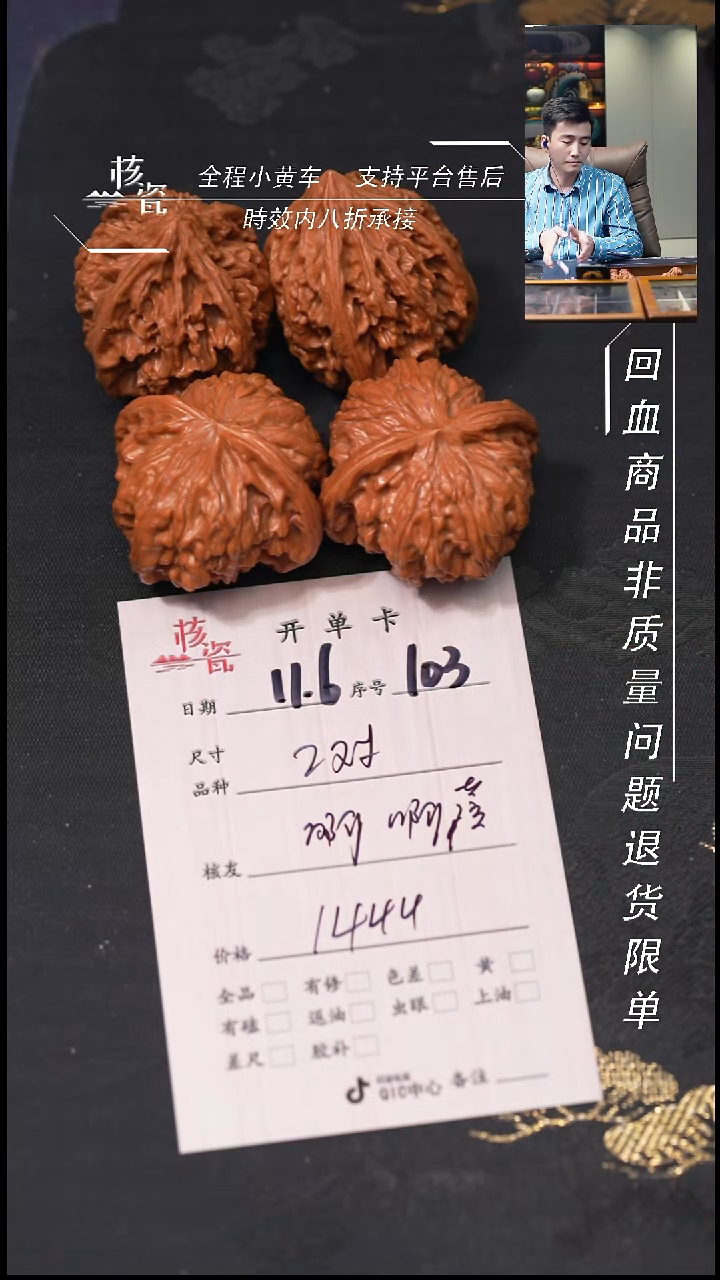 核瓷
全程小黄车 支持平台售后
時效内八折承接
回血商品非质量问题退货限单
核瓷
开单卡
日期 11.6 序号 103
尺寸 2对
品种
核友
价格 1444
全品 有修 色差 黄
有磕 返油 虫眼 上油
差尺 胶补
QIC中心 备注